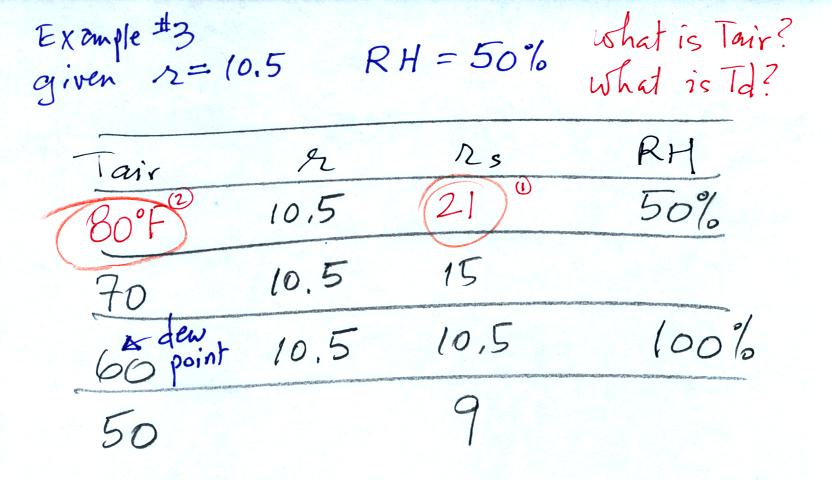 Example #3
given r = 10.5 RH = 50% what is Tair?
what is Td?
Tair r rs RH
80°F ② 10.5 21 ① 50%
70 10.5 15
60 dew point 10.5 10.5 100%
50 9